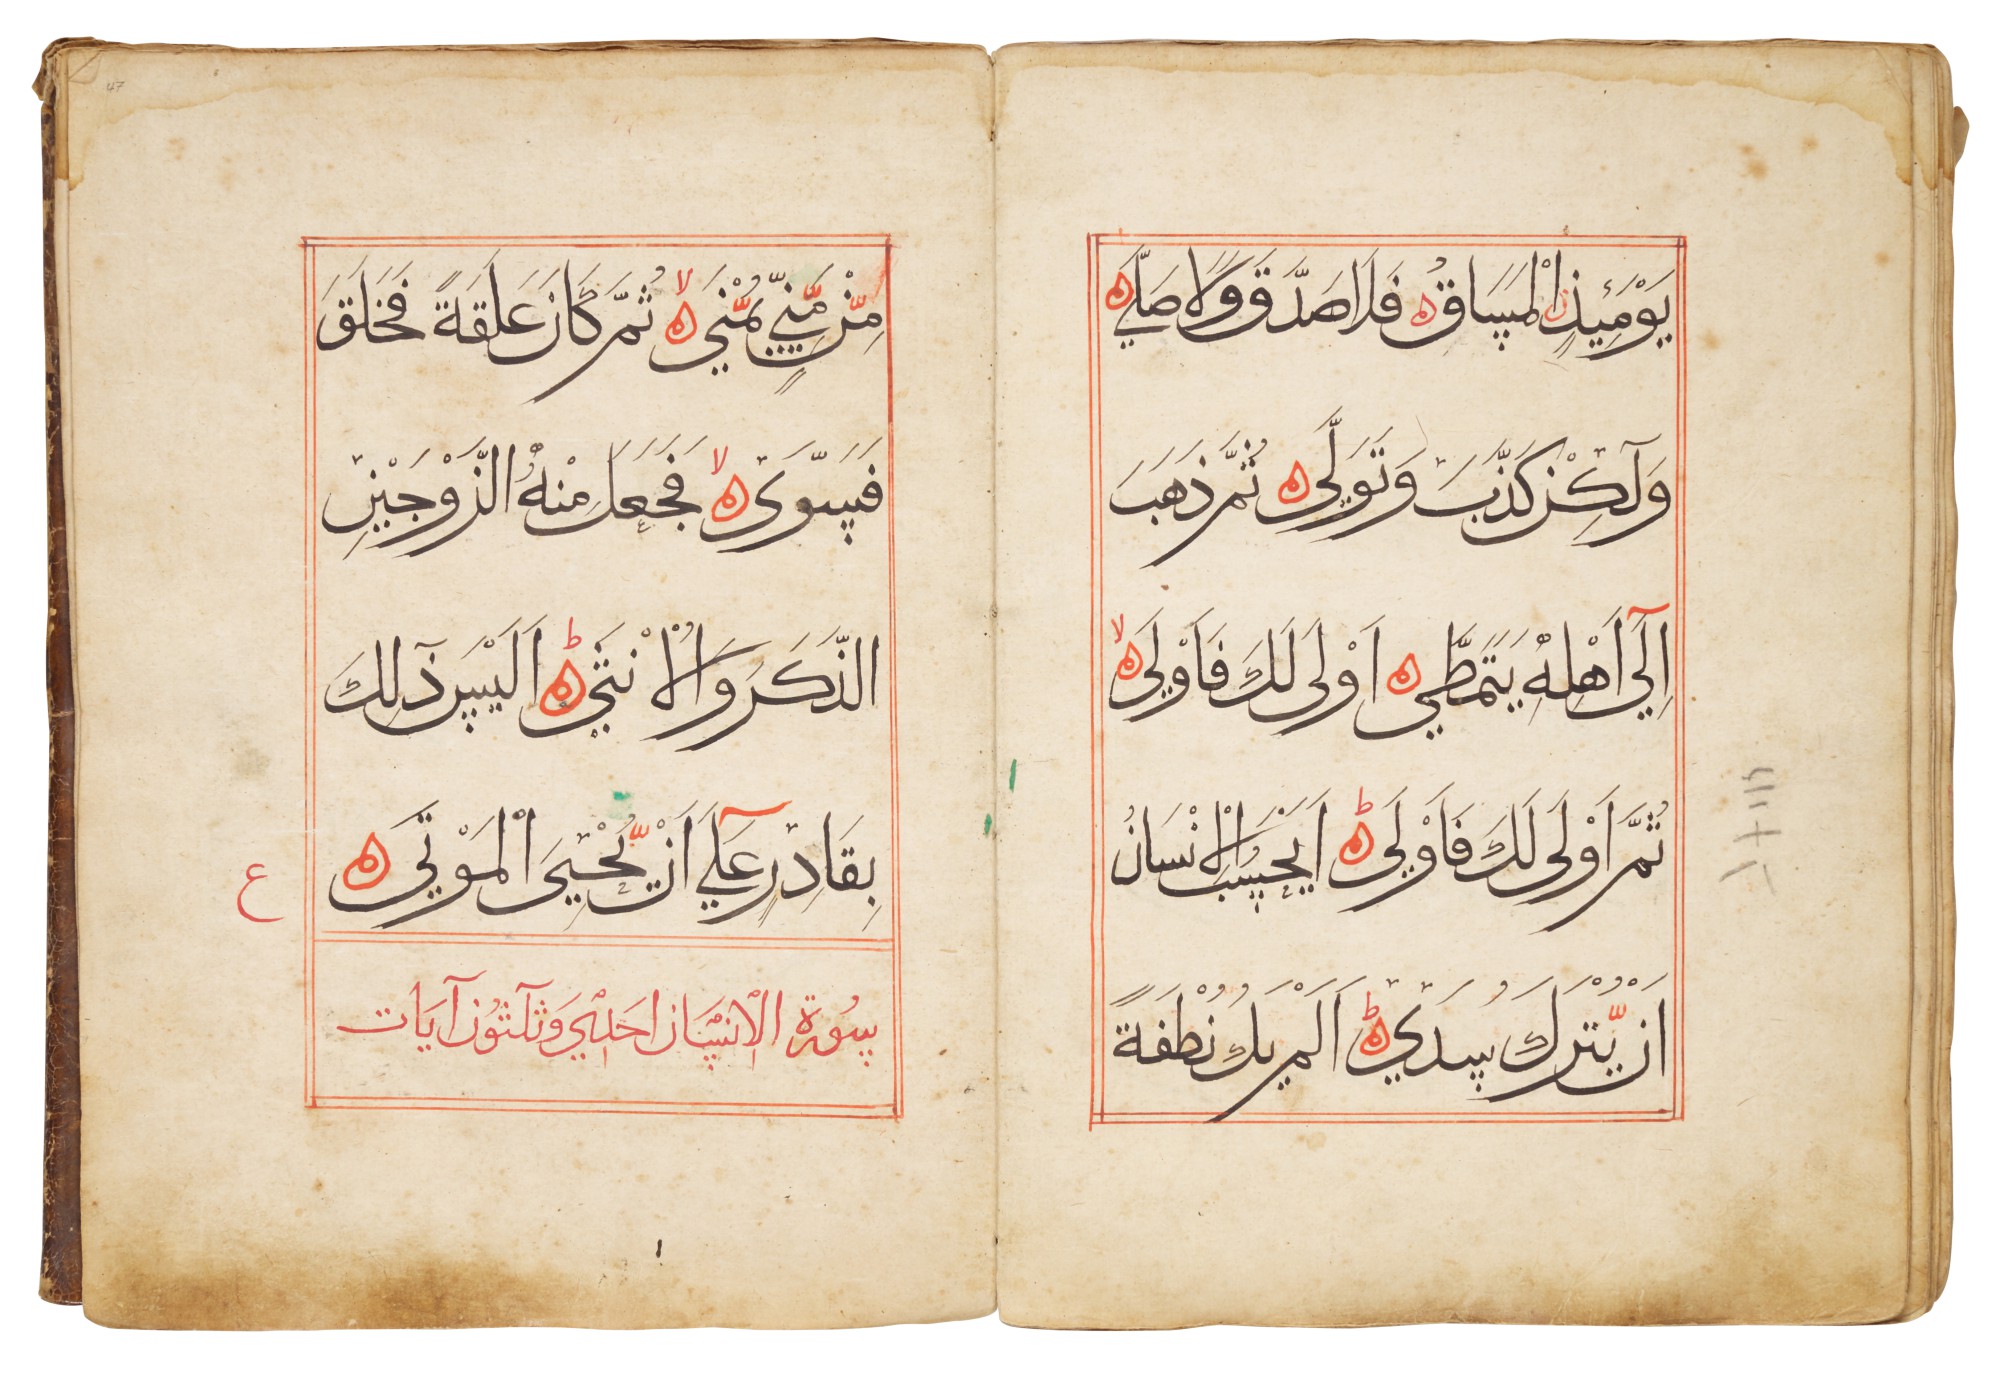 يَوْمَئِذٍ الْمَسَاقُ ۝ فَلَا صَدَّقَ وَلَا صَلَّى ۝
وَلٰكِنْ كَذَّبَ وَتَوَلَّى ۝ ثُمَّ ذَهَبَ
اِلٰٓى اَهْلِهٖ يَتَمَطّٰى ۝ اَوْلٰى لَكَ فَاَوْلٰى ۝ لا
ثُمَّ اَوْلٰى لَكَ فَاَوْلٰى ۝ ط اَيَحْسَبُ الْاِنْسَانُ
اَنْ يُّتْرَكَ سُدًى ۝ ط اَلَمْ يَكُ نُطْفَةً
مِّنْ مَّنِيٍّ يُّمْنٰى ۝ لا ثُمَّ كَانَ عَلَقَةً فَخَلَقَ
فَسَوّٰى ۝ لا فَجَعَلَ مِنْهُ الزَّوْجَيْنِ
الذَّكَرَ وَالْاُنْثٰى ۝ ط اَلَيْسَ ذٰلِكَ
بِقَادِرٍ عَلٰٓى اَنْ يُّحْيِيَ الْمَوْتٰى ۝
ع
سُورة الْاِنْسَان احدي وَثلٰثون آيَات